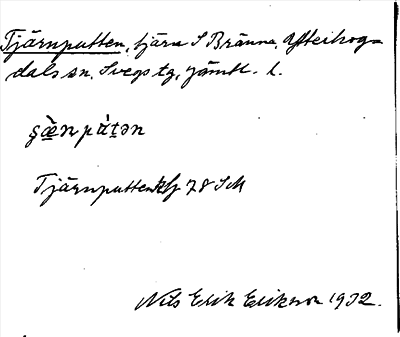 Tjärnputten, tjärn S Bränna, Ytterhog=
dals sn, Svegs tg, Jämtl. l.
s̨æ̀npút̠ən
Tjärnputten 78 SM
Nils Erik Erikson 1932.